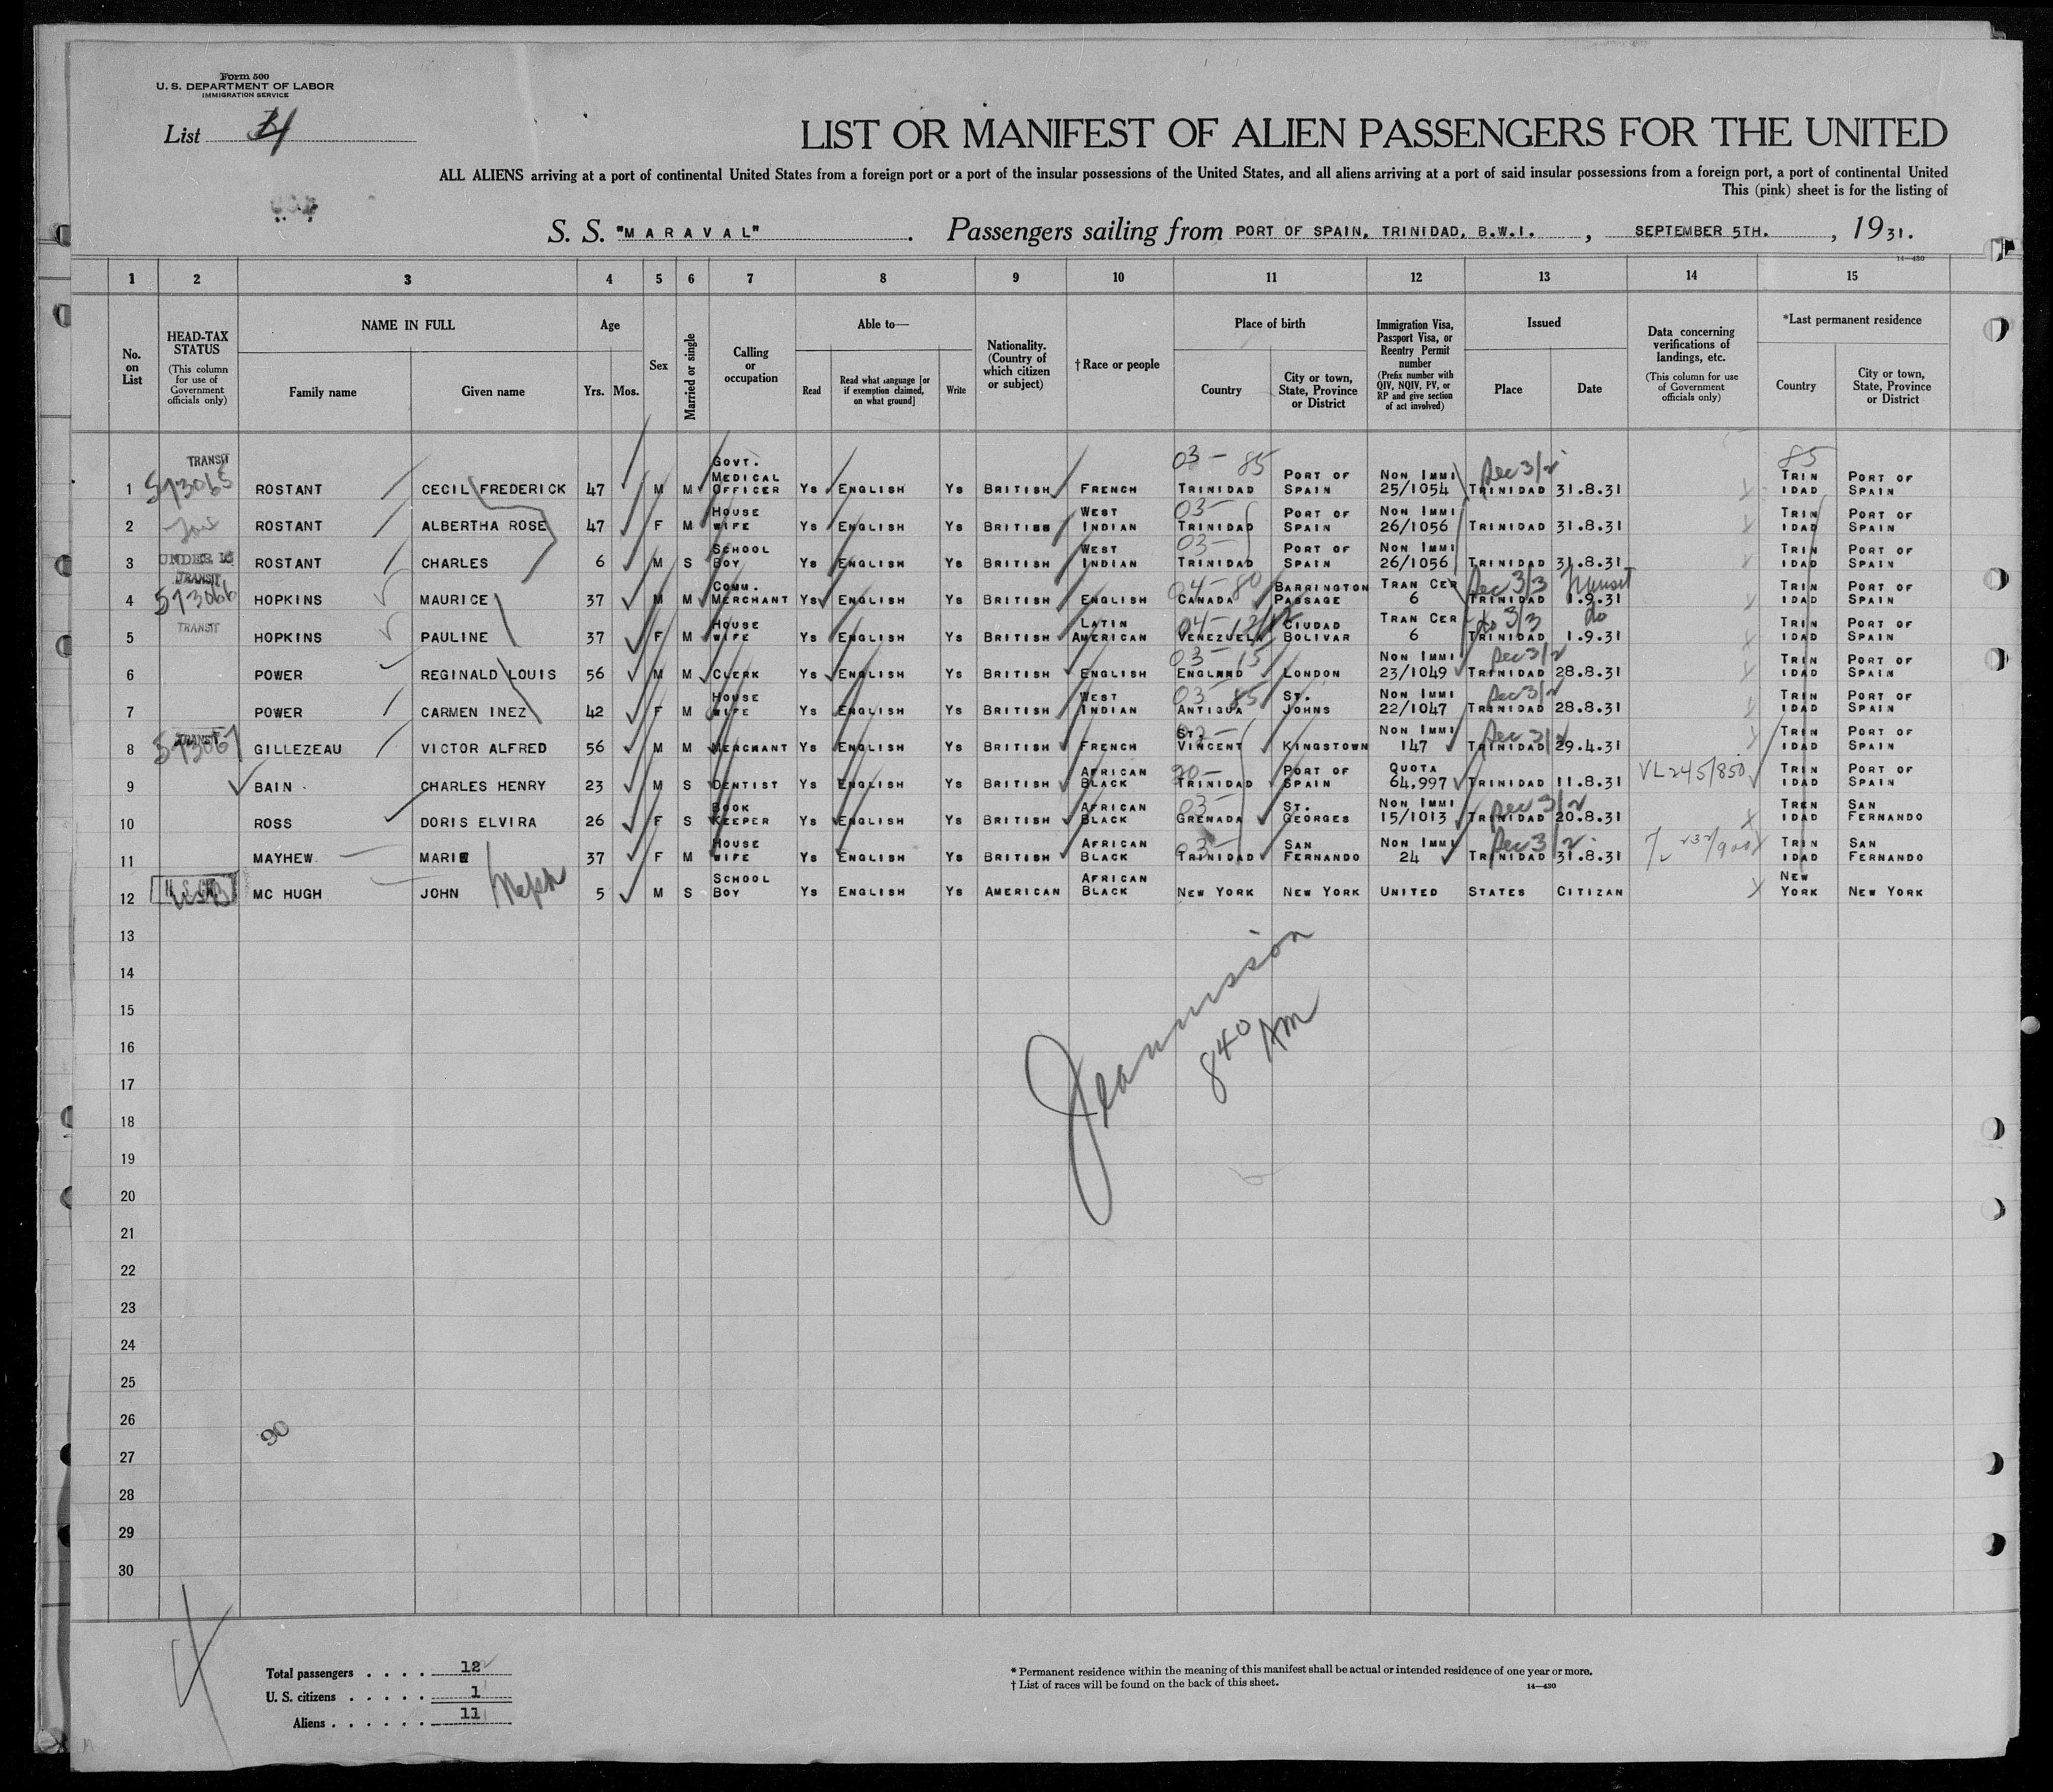 Form 500
U. S. DEPARTMENT OF LABOR
IMMIGRATION SERVICE
List 4
LIST OR MANIFEST OF ALIEN PASSENGERS FOR THE UNITED
ALL ALIENS arriving at a port of continental United States from a foreign port or a port of the insular possessions of the United States, and all aliens arriving at a port of said insular possessions from a foreign port, a port of continental United
This (pink) sheet is for the listing of
S. S. "MARAVAL". Passengers sailing from PORT OF SPAIN, TRINIDAD, B.W.I. , SEPTEMBER 5TH. , 1931.
14—430
1 2 3 4 5 6 7 8 9 10 11 12 13 14 15
No. on List
HEAD-TAX STATUS (This column for use of Government officials only)
NAME IN FULL
Family name Given name
Age
Yrs. Mos.
Sex
Married or single
Calling or occupation
Able to—
Read Read what language [or if exemption claimed, on what ground] Write
Nationality. (Country of which citizen or subject)
† Race or people
Place of birth
Country City or town, State, Province or District
Immigration Visa, Passport Visa, or Reentry Permit number (Prefix number with QIV, NQIV, PV, or RP and give section of act involved)
Issued
Place Date
Data concerning verifications of landings, etc. (This column for use of Government officials only)
*Last permanent residence
Country City or town, State, Province or District
1 TRANSIT 573065 ROSTANT CECIL FREDERICK 47 M M GOVT. MEDICAL OFFICER YS ENGLISH YS BRITISH FRENCH 03 - 85 TRINIDAD PORT OF SPAIN NON IMMI 25/1054 Sec 3/2 TRINIDAD 31.8.31 85 TRINIDAD PORT OF SPAIN
2 ROSTANT ALBERTHA ROSE 47 F M HOUSE WIFE YS ENGLISH YS BRITISH WEST INDIAN 03- TRINIDAD PORT OF SPAIN NON IMMI 26/1056 TRINIDAD 31.8.31 TRINIDAD PORT OF SPAIN
3 UNDER 16 ROSTANT CHARLES 6 M S SCHOOL BOY YS ENGLISH YS BRITISH WEST INDIAN 03- TRINIDAD PORT OF SPAIN NON IMMI 26/1056 TRINIDAD 31.8.31 TRINIDAD PORT OF SPAIN
4 TRANSIT 573066 HOPKINS MAURICE 37 M M COMM. MERCHANT YS ENGLISH YS BRITISH ENGLISH 04-80 CANADA BARRINGTON PASSAGE TRAN CER 6 Sec 3/3 Transit TRINIDAD 1.9.31 TRINIDAD PORT OF SPAIN
5 TRANSIT HOPKINS PAULINE 37 F M HOUSE WIFE YS ENGLISH YS BRITISH LATIN AMERICAN 04- VENEZUELA CIUDAD BOLIVAR TRAN CER 6 do 3/3 do TRINIDAD 1.9.31 TRINIDAD PORT OF SPAIN
6 POWER REGINALD LOUIS 56 M M CLERK YS ENGLISH YS BRITISH ENGLISH 03-15 ENGLAND LONDON NON IMMI 23/1049 Sec 3/2 TRINIDAD 28.8.31 TRINIDAD PORT OF SPAIN
7 POWER CARMEN INEZ 42 F M HOUSE WIFE YS ENGLISH YS BRITISH WEST INDIAN 03-85 ANTIGUA ST. JOHNS NON IMMI 22/1047 Sec 3/2 TRINIDAD 28.8.31 TRINIDAD PORT OF SPAIN
8 TRANSIT 573067 GILLEZEAU VICTOR ALFRED 56 M M MERCHANT YS ENGLISH YS BRITISH FRENCH ST. VINCENT KINGSTOWN NON IMMI 147 Sec 3/2 TRINIDAD 29.4.31 TRINIDAD PORT OF SPAIN
9 BAIN CHARLES HENRY 23 M S DENTIST YS ENGLISH YS BRITISH AFRICAN BLACK TRINIDAD PORT OF SPAIN QUOTA 64,997 TRINIDAD 11.8.31 VL 245/850 TRINIDAD PORT OF SPAIN
10 ROSS DORIS ELVIRA 26 F S BOOK KEEPER YS ENGLISH YS BRITISH AFRICAN BLACK 03- GRENADA ST. GEORGES NON IMMI 15/1013 Sec 3/2 TRINIDAD 20.8.31 TREN IDAD SAN FERNANDO
11 MAYHEW MARIE 37 F M HOUSE WIFE YS ENGLISH YS BRITISH AFRICAN BLACK 03- TRINIDAD SAN FERNANDO NON IMMI 24 Sec 3/2 TRINIDAD 31.8.31 TRINIDAD SAN FERNANDO
12 MC HUGH JOHN Neph 5 M S SCHOOL BOY YS ENGLISH YS AMERICAN AFRICAN BLACK NEW YORK NEW YORK UNITED STATES CITIZAN NEW YORK NEW YORK
13
14
15
16
17
18
19
20
21
22
23
24
25
26
27
28
29
30
840 AM
90
Total passengers . . . . 12
U. S. citizens . . . . . 1
Aliens . . . . . . 11
* Permanent residence within the meaning of this manifest shall be actual or intended residence of one year or more.
† List of races will be found on the back of this sheet.
14—430